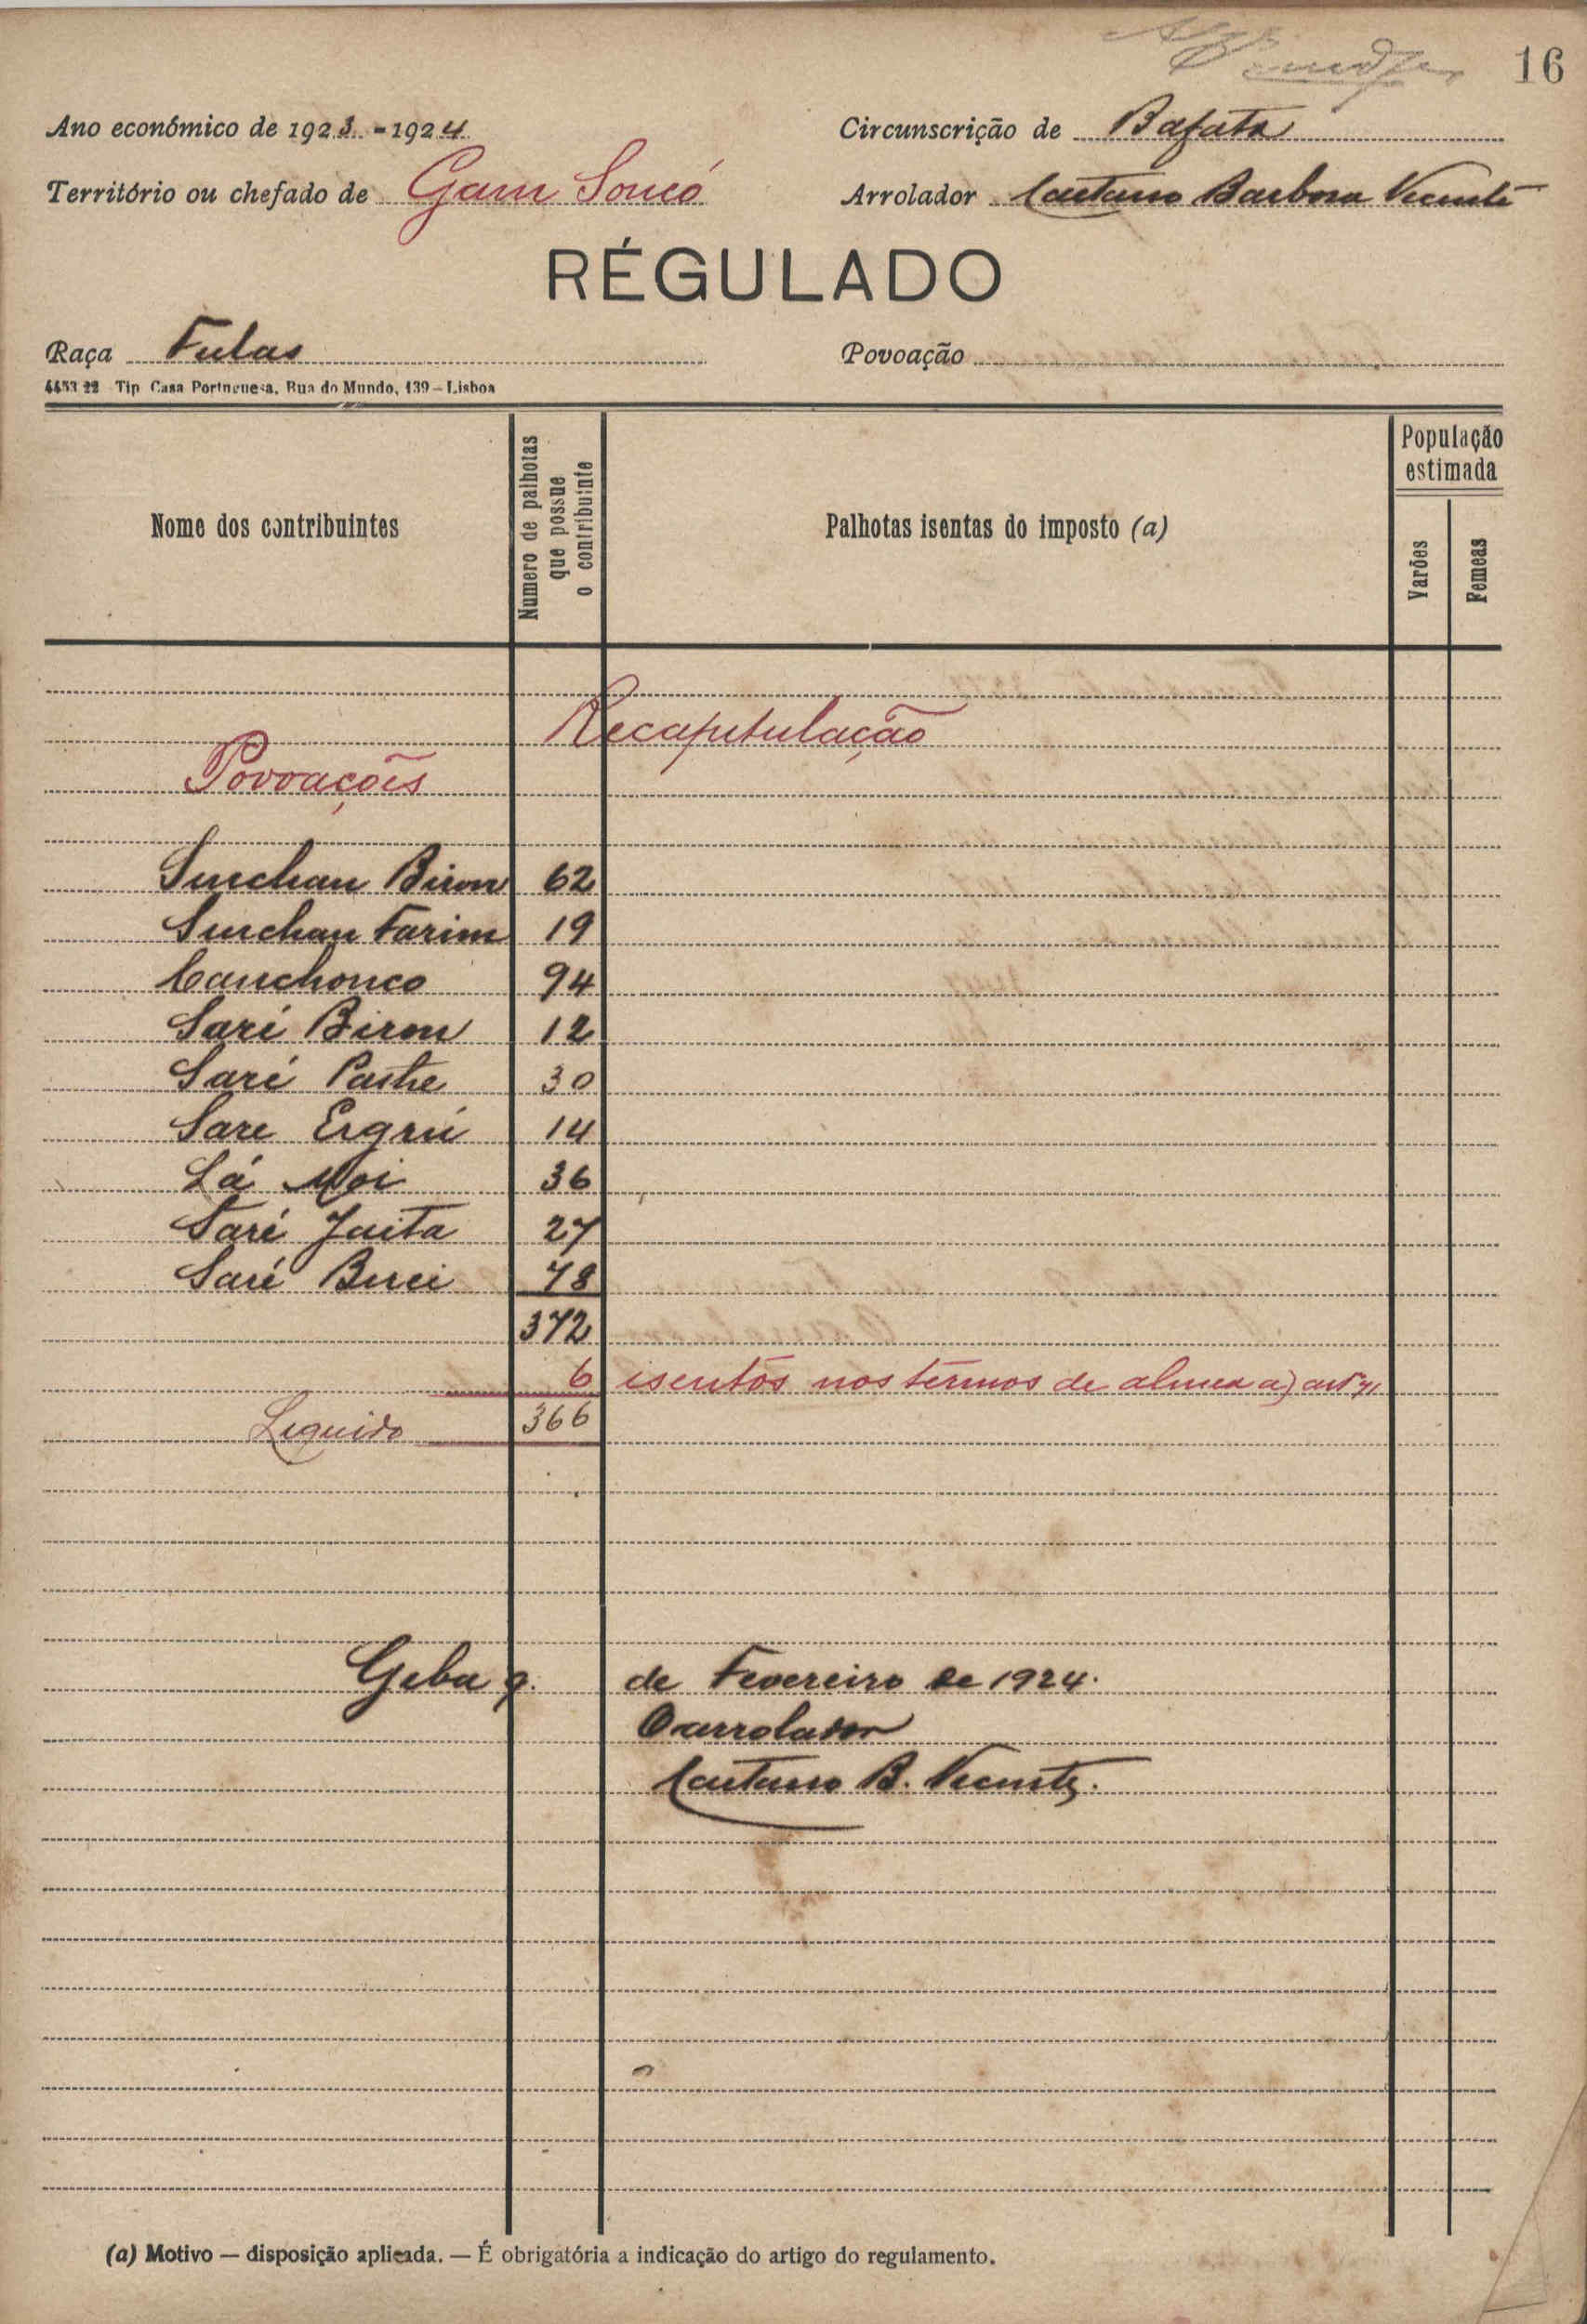 16
Ano económico de 1923 - 1924
Circunscrição de Bafata
Território ou chefado de Gam Soncó
Arrolador Caetano Barbosa Vicente
RÉGULADO
Raça Fulas
Povoação
4453 22 Tip Casa Portuguesa, Rua do Mundo, 139 – Lisboa
Nome dos contribuintes
Numero de palhotas que possue o contribuinte
Palhotas isentas do imposto (a)
População estimada
Varões
Femeas
Recapitulação
Povoações
Sinchan Biron 62
Sinchan Farim 19
Canchonco 94
Saré Biron 12
Saré 30
Sare 14
Lá Moi 36
Saré Jaita 27
Saré 78
372
6 isentos nos termos de alinea a) art
Liquido 366
Geba 9. de Fevereiro de 1924.
O arrolador
Caetano B. Vicente.
(a) Motivo — disposição aplicada. — É obrigatória a indicação do artigo do regulamento.